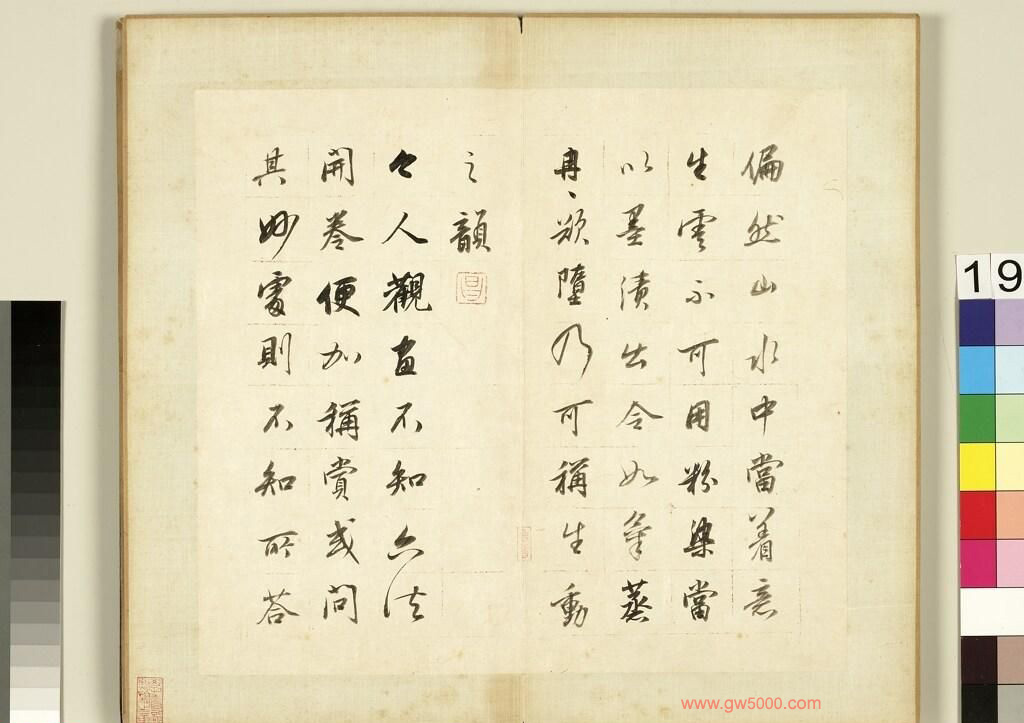 偏然山水中當着意
生雲不可用粉染當
以墨漬出令如氣蒸
冉、欲墮乃可稱生動
之韻
昌
今人觀畫不知六法
開卷便加稱賞或問
其妙處則不知所答
19
www.gw5000.com